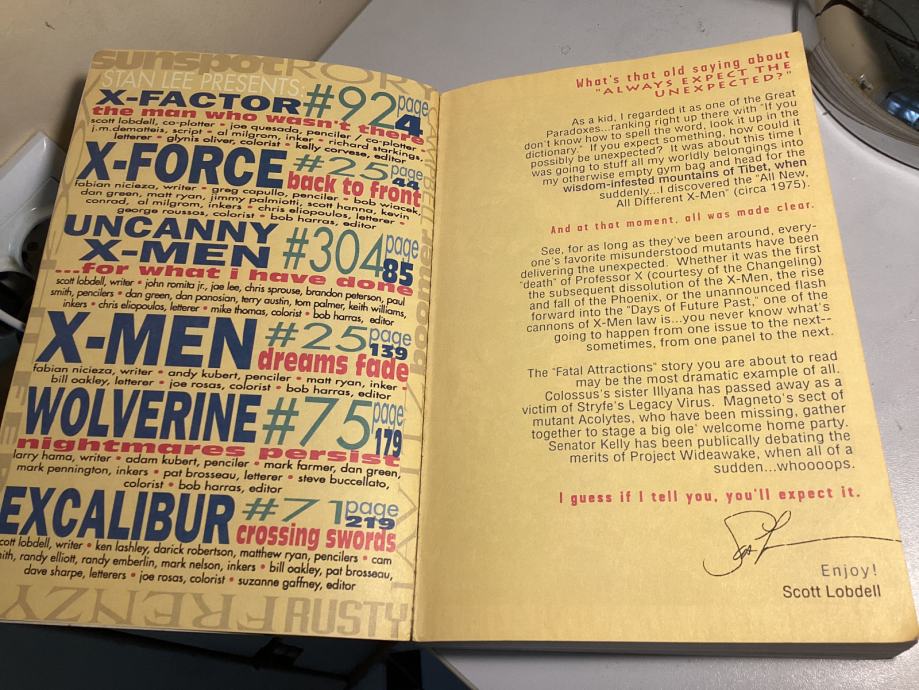 sunspot
STAN LEE PRESENTS:
X-FACTOR #92 page 4
the man who wasn't there
scott lobdell, co-plotter • joe quesada, penciler / co-plotter •
j.m.dematteis, script • al milgrom, inker • richard starkings,
letterer • glynis oliver, colorist • kelly corvese, editor
X-FORCE #25 page 44
back to front
fabian nicieza, writer • greg capullo, penciler • bob wiacek,
dan green, matt ryan, jimmy palmiotti, scott hanna, kevin
conrad, al milgrom, inkers • chris eliopoulos, letterer •
george roussos, colorist • bob harras, editor
UNCANNY
X-MEN #304 page 85
...for what i have done
scott lobdell, writer • john romita jr., jae lee, chris sprouse, brandon peterson, paul
smith, pencilers • dan green, dan panosian, terry austin, tom palmer, keith williams,
inkers • chris eliopoulos, letterer • mike thomas, colorist • bob harras, editor
X-MEN #25 page 139
dreams fade
fabian nicieza, writer • andy kubert, penciler • matt ryan, inker •
bill oakley, letterer • joe rosas, colorist • bob harras, editor
WOLVERINE #75 page 179
nightmares persist
larry hama, writer • adam kubert, penciler • mark farmer, dan green,
mark pennington, inkers • pat brosseau, letterer • steve buccellato,
colorist • bob harras, editor
EXCALIBUR #71 page 219
crossing swords
scott lobdell, writer • ken lashley, darick robertson, matthew ryan, pencilers • cam
smith, randy elliott, randy emberlin, mark nelson, inkers • bill oakley, pat brosseau,
dave sharpe, letterers • joe rosas, colorist • suzanne gaffney, editor
FRENZY RUSTY
What's that old saying about
"ALWAYS EXPECT THE
UNEXPECTED?"
As a kid, I regarded it as one of the Great
Paradoxes...ranking right up there with "If you
don't know how to spell the word, look it up in the
dictionary." If you expect something, how could it
possibly be unexpected? It was about this time I
was going to stuff all my worldly belongings into
my otherwise empty gym bag and head for the
wisdom-infested mountains of Tibet, when
suddenly...I discovered the "All New,
All Different X-Men" (circa 1975).
And at that moment, all was made clear.
See, for as long as they've been around, every-
one's favorite misunderstood mutants have been
delivering the unexpected. Whether it was the first
"death" of Professor X (courtesy of the Changeling)
the subsequent dissolution of the X-Men, the rise
and fall of the Phoenix, or the unannounced flash
forward into the "Days of Future Past," one of the
cannons of X-Men law is...you never know what's
going to happen from one issue to the next--
sometimes, from one panel to the next.
The "Fatal Attractions" story you are about to read
may be the most dramatic example of all.
Colossus's sister Illyana has passed away as a
victim of Stryfe's Legacy Virus. Magneto's sect of
mutant Acolytes, who have been missing, gather
together to stage a big ole' welcome home party.
Senator Kelly has been publically debating the
merits of Project Wideawake, when all of a
sudden...whoooops.
I guess if I tell you, you'll expect it.
Enjoy!
Scott Lobdell